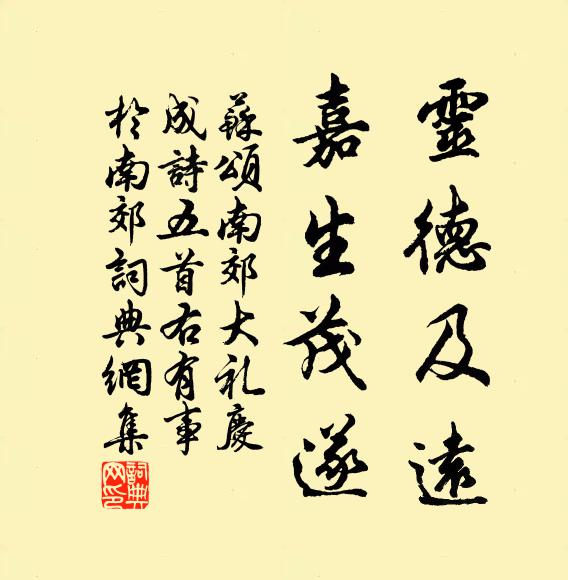 靈德及遠
嘉生茂遂
蘇頌南郊大礼慶
成詩五首右有事
於南郊詞典網集
詞典
网印